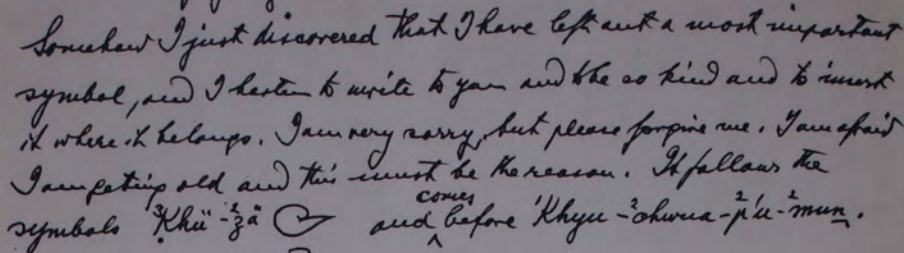 Somehow I just discovered that I have left out a most important
symbol, and I hasten to write to you and to be so kind and to insert
it where it belongs. I am very sorry, but please forgive me. I am afraid
I am geting old and this must be the reason. It follows the
symbols ³Khü-²zä and comes before ¹Khyu-²chwua-²p'u-²mun.